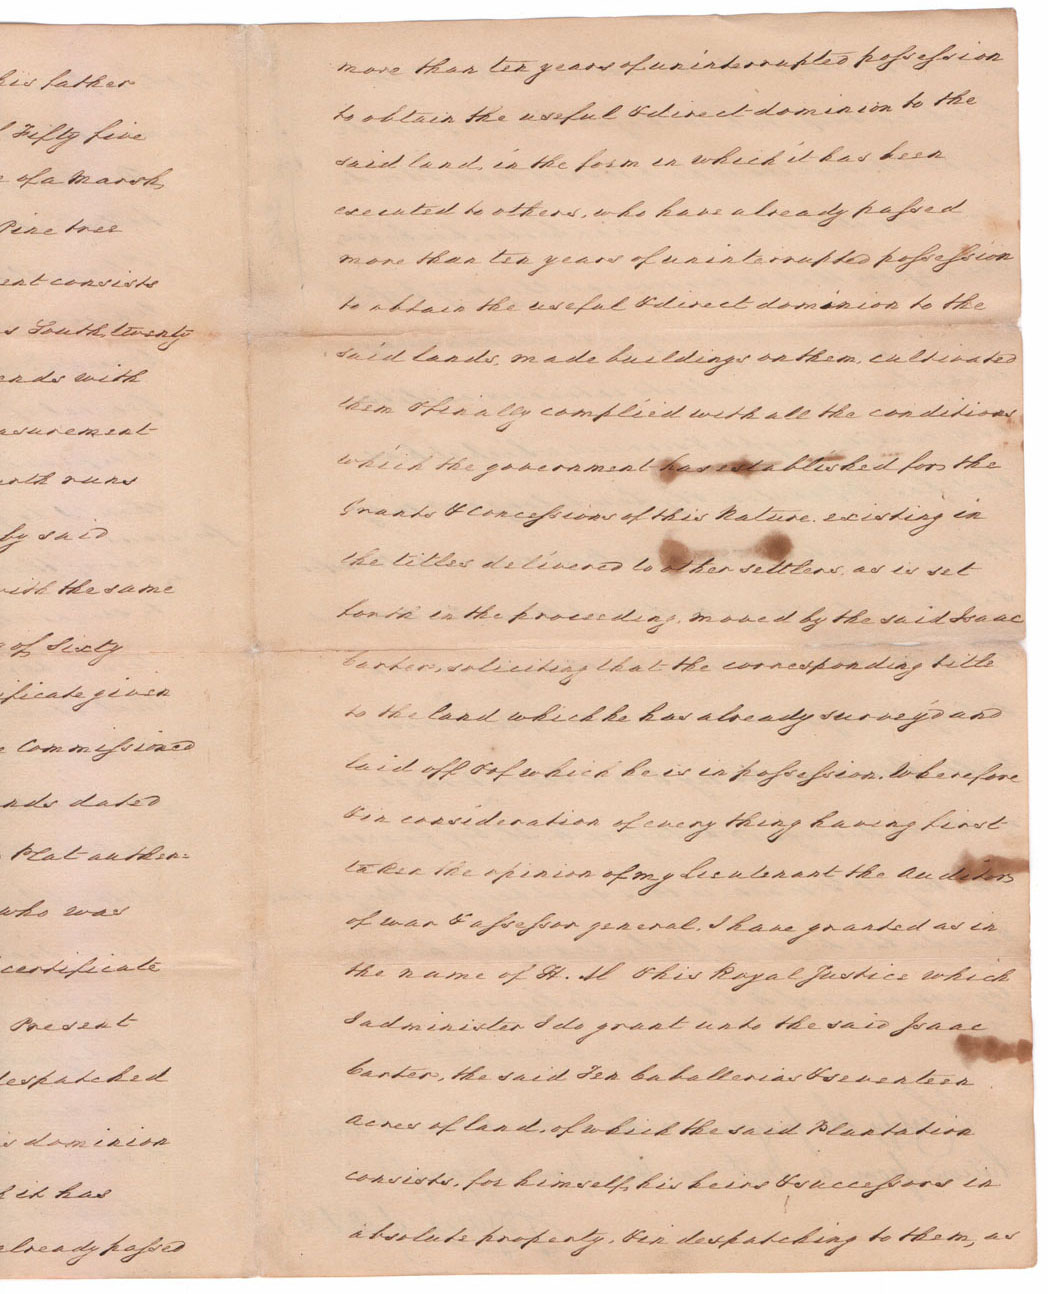 his father
Fifty five
of a Marsh,
Pine tree
ent consists
s South, twenty
ends with
asurement
orth runs
by said
with the same
of Sixty
ificate given
e Commissioned
nds dated
Plat authen=
who was
certificate
Present
despatched
is dominion
it has
already passed
more than ten years of uninterrupted possession
to obtain the useful & direct dominion to the
said land, in the form in which it has been
executed to others, who have already passed
more than ten years of uninterrupted possession
to obtain the useful & direct dominion to the
said lands, made buildings on them, cultivated
them & finally complied with all the conditions
which the government has established for the
Grants & Concessions of this Nature, existing in
the titles delivered to other settlers, as is set
forth in the proceeding, moved by the said Isaac
Carter, soliciting that the corresponding title
to the land which he has already survey'd and
laid off & of which he is in possession. Wherefore
& in consideration of every thing having first
taken the opinion of my Lieutenant the Auditor
of war & assessor general. I have granted as in
the name of H. M & his Royal Justice which
I administer I do grant unto the said Isaac
Carter, the said Ten Caballerias & seventeen
acres of land, of which the said Plantation
consists, for himself, his heirs & successors in
absolute property, & in despatching to them, as